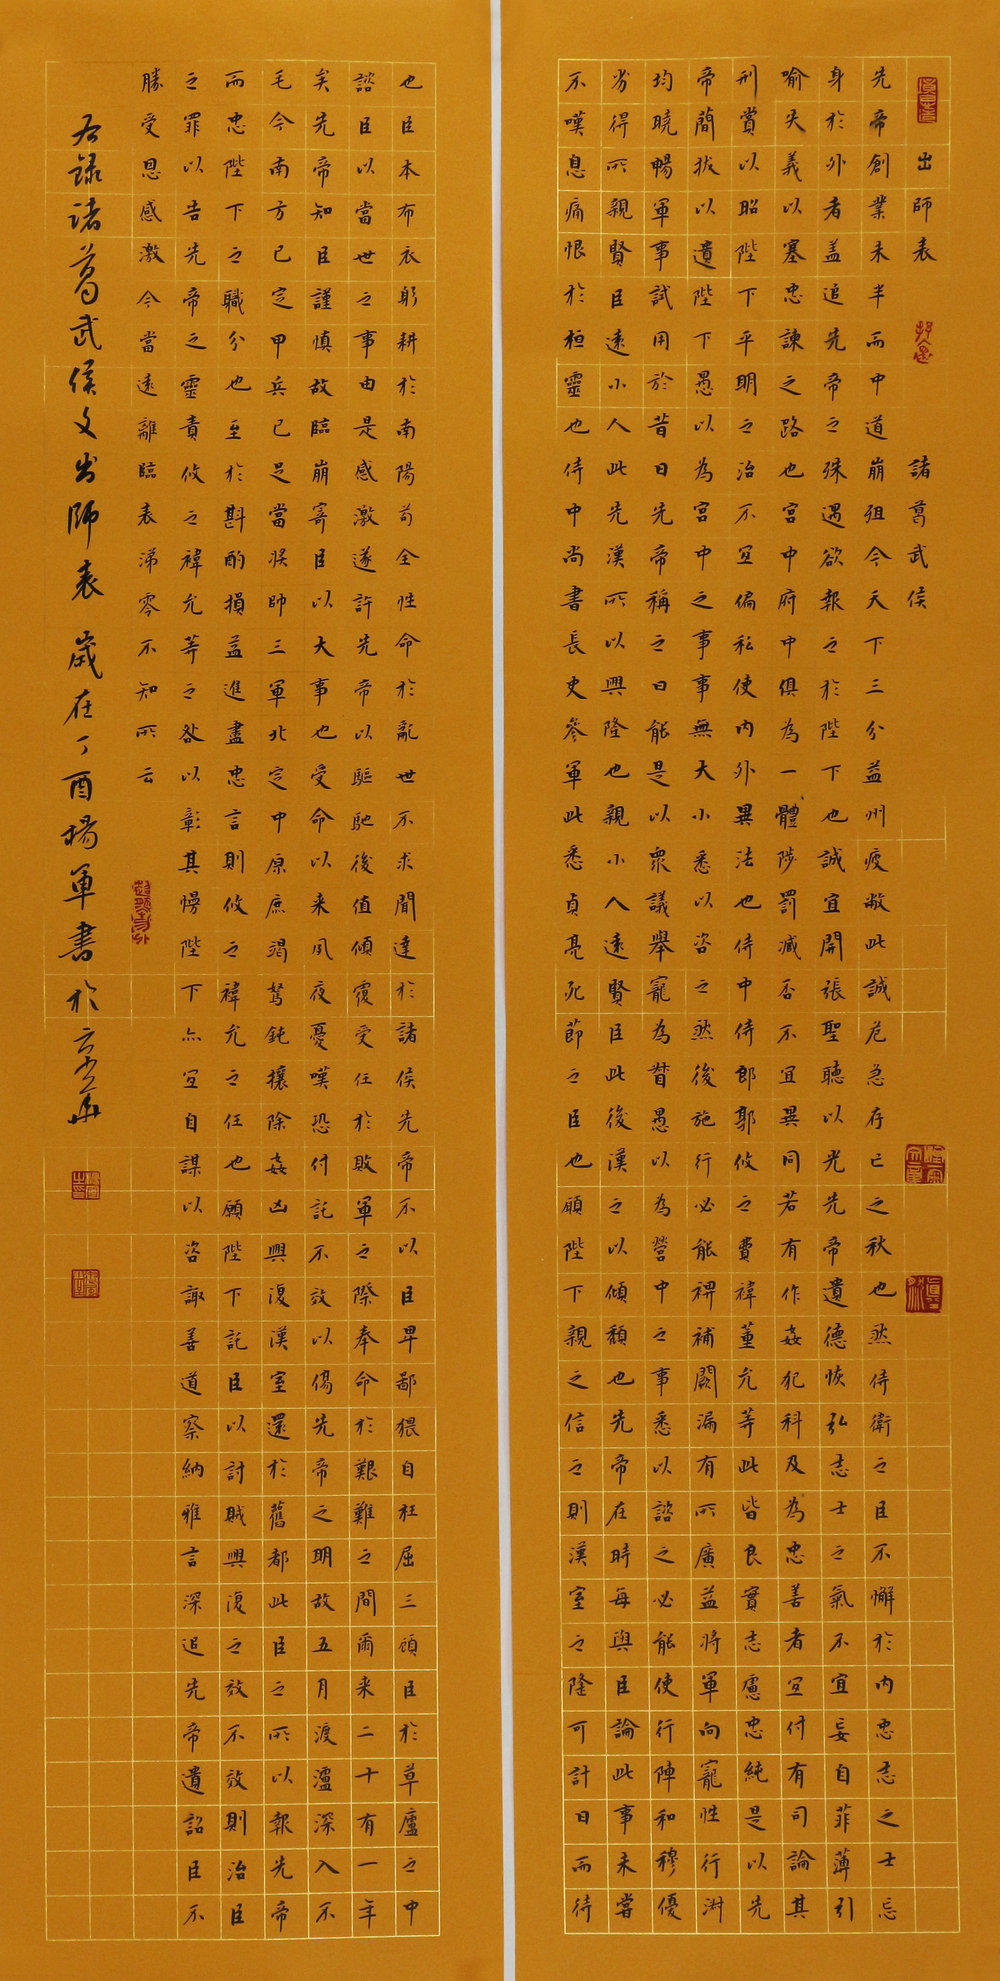 出師表 諸葛武侯
先帝創業未半而中道崩殂今天下三分益州疲敝此誠危急存亡之秋也然侍衛之臣不懈於內忠志之士忘
身於外者盖追先帝之殊遇欲報之於陛下也誠宜開張聖聽以光先帝遺德恢弘志士之氣不宜妄自菲薄引
喻失義以塞忠諫之路也宮中府中俱為一體陟罰臧否不宜異同若有作姦犯科及為忠善者宜付有司論其
刑賞以昭陛下平明之治不宜偏私使內外異法也侍中侍郎郭攸之費禕董允等此皆良實志慮忠純是以先
帝簡拔以遺陛下愚以為宮中之事事無大小悉以咨之然後施行必能裨補闕漏有所廣益將軍向寵性行淑
均曉暢軍事試用於昔日先帝稱之曰能是以眾議舉寵為督愚以為營中之事悉以諮之必能使行陣和穆優
劣得所親賢臣遠小人此先漢所以興隆也親小人遠賢臣此後漢之以傾頹也先帝在時每與臣論此事未嘗
不嘆息痛恨於桓靈也侍中尚書長史參軍此悉貞亮死節之臣也願陛下親之信之則漢室之隆可計日而待
也臣本布衣躬耕於南陽苟全性命於亂世不求聞達於諸侯先帝不以臣卑鄙猥自枉屈三顧臣於草廬之中
諮臣以當世之事由是感激遂許先帝以驅馳後值傾覆受任於敗軍之際奉命於艱難之間爾来二十有一年
矣先帝知臣謹慎故臨崩寄臣以大事也受命以来夙夜憂嘆恐付託不效以傷先帝之明故五月渡瀘深入不
毛今南方已定甲兵已足當獎帥三軍北定中原庶竭駑鈍攘除姦凶興復漢室還於舊都此臣之所以報先帝
而忠陛下之職分也至於斟酌損益進盡忠言則攸之禕允之任也願陛下託臣以討賊興復之效不效則治臣
之罪以告先帝之靈責攸之禕允等之咎以彰其慢陛下亦宜自謀以咨諏善道察納雅言深追先帝遺詔臣不
勝受恩感激今當遠離臨表涕零不知所云
右錄諸葛武侯文出師表 歲在丁酉楊軍書於京華